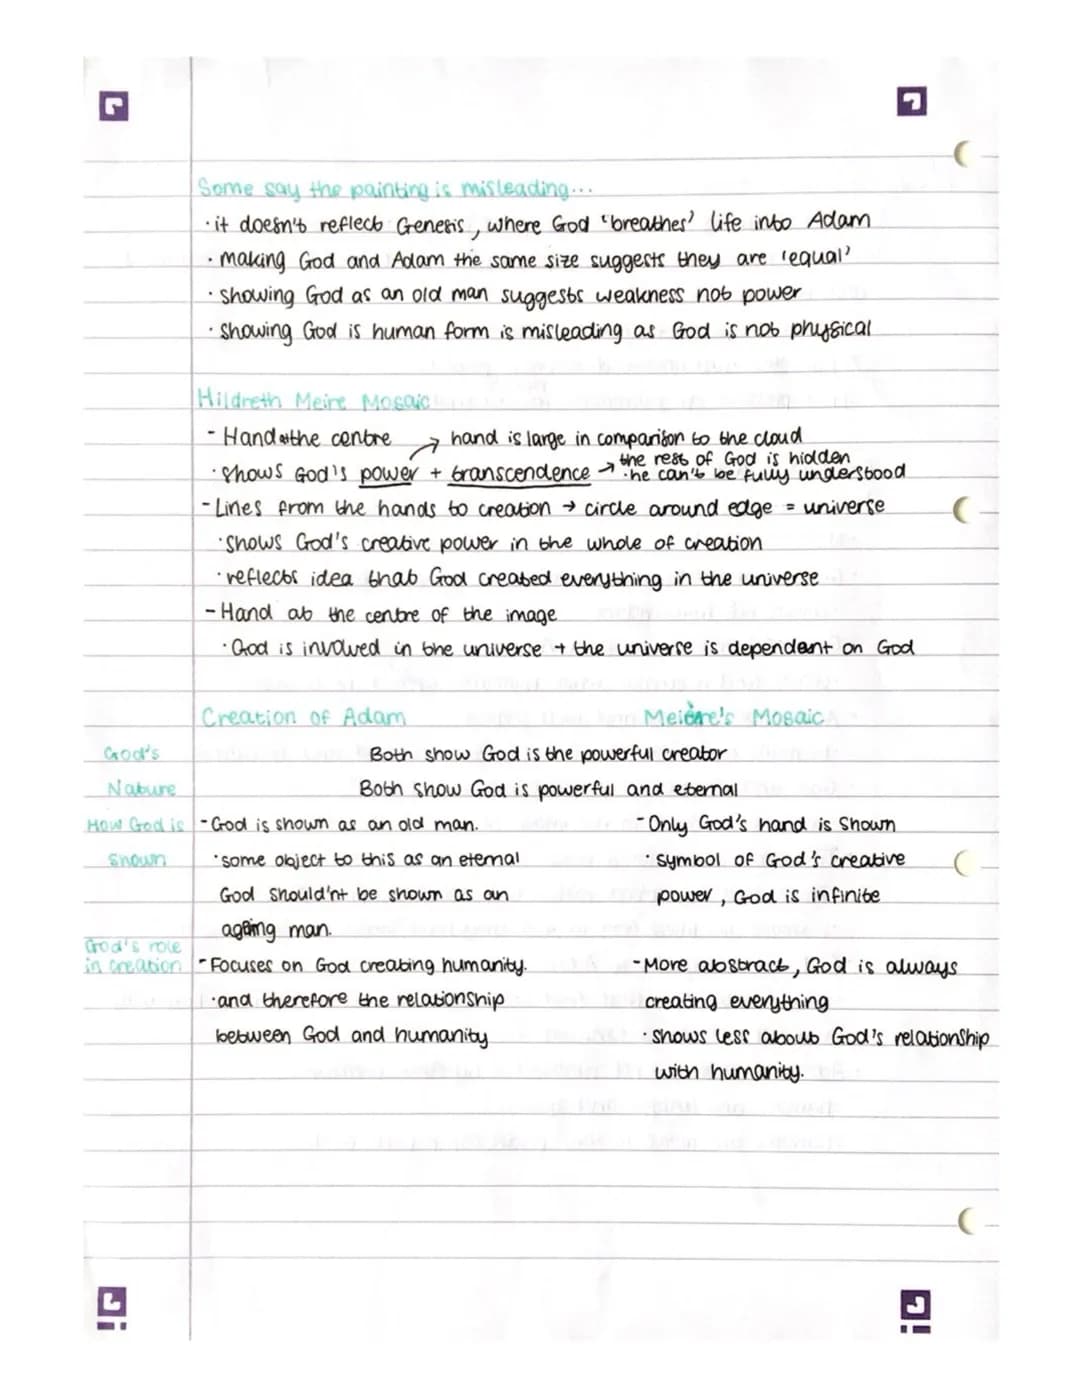 Some say the painting is misleading...
· it doesn't reflect Genesis, where God 'breathes' life into Adam
· making God and Adam the same size suggests they are 'equal'
· showing God as an old man suggests weakness not power
· showing God is human form is misleading as God is not physical
Hildreth Meire Mosaic
- Hand at the centre → hand is large in comparison to the cloud
· shows God's power + transcendence → the rest of God is hidden
· he can't be fully understood
- Lines from the hands to creation → circle around edge = universe
· shows God's creative power in the whole of creation
· reflects idea that God created everything in the universe
- Hand at the centre of the image
· God is involved in the universe + the universe is dependant on God
Creation of Adam Meiere's Mosaic
God's Both show God is the powerful creator
Nature Both show God is powerful and eternal
How God is - God is shown as an old man. - Only God's hand is shown
shown · some object to this as an eternal · symbol of God's creative
God should'nt be shown as an power, God is infinite
ageing man.
God's role
in creation - Focuses on God creating humanity. - More abstract, God is always
· and therefore the relationship creating everything
between God and humanity · shows less about God's relationship
with humanity.